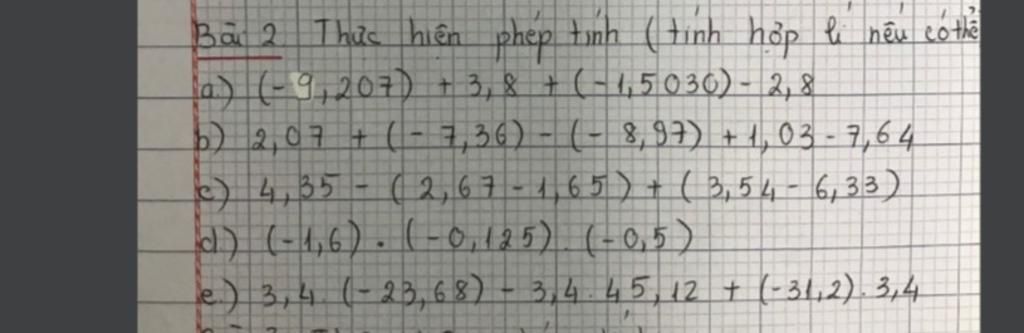 Bài 2 Thực hiện phép tính (tính hợp lí nếu có thể
a) (-9,207) + 3,8 + (-1,5030) - 2,8
b) 2,07 + (-7,36) - (-8,97) + 1,03 - 7,64
c) 4,35 - (2,67 - 1,65) + (3,54 - 6,33)
d) (-1,6) . (-0,125) . (-0,5)
e) 3,4 . (-23,68) - 3,4 . 45,12 + (-31,2) . 3,4